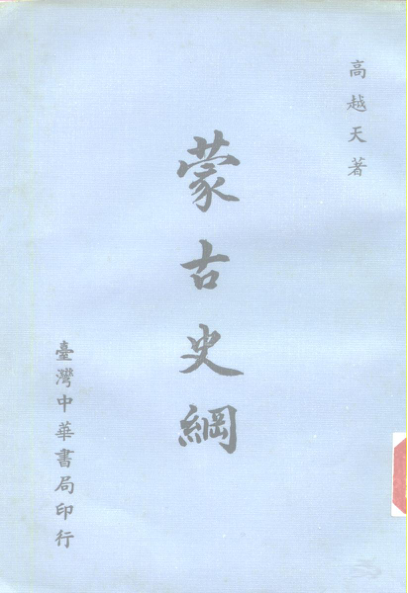 高越天著
蒙古史綱
臺灣中華書局印行